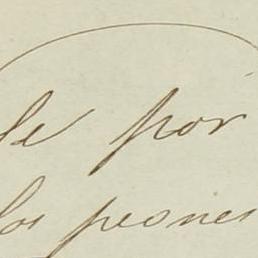 se por
los peones